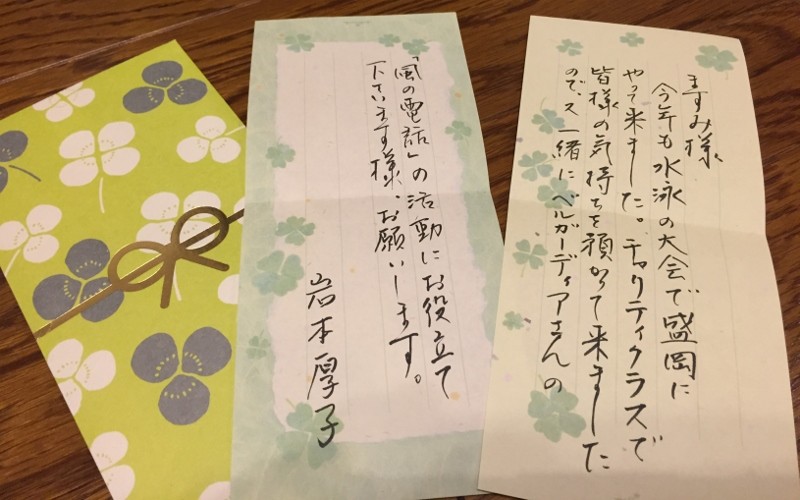 ますみ様
今年も水泳の大会で盛岡に
やって来ました。チャリティクラスで
皆様の気持ちを預かって来ました
ので、又一緒にベルガーディアさんの
「風の電話」の活動にお役立て
下さいます様、お願いします。
岩本厚子